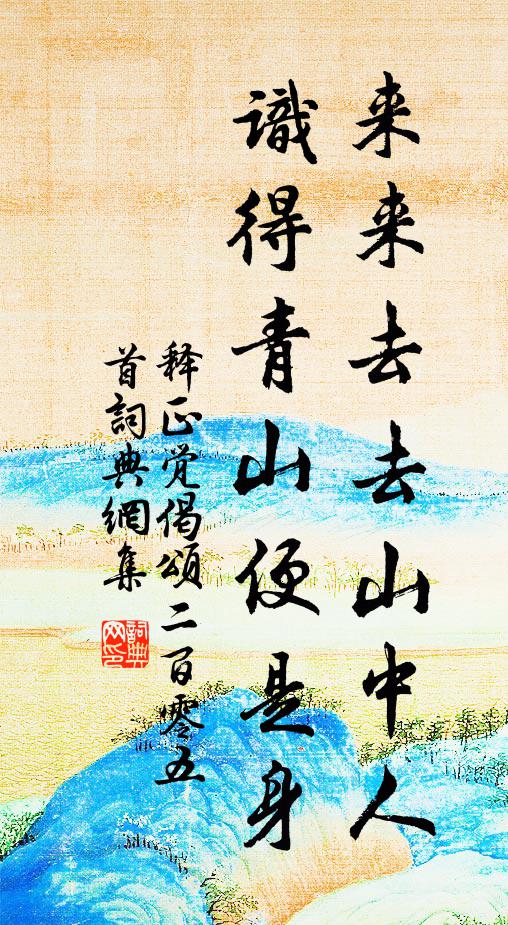 来来去去山中人
識得青山便是身
释正觉偈頌二百零五
首詞典網集
詞典网印